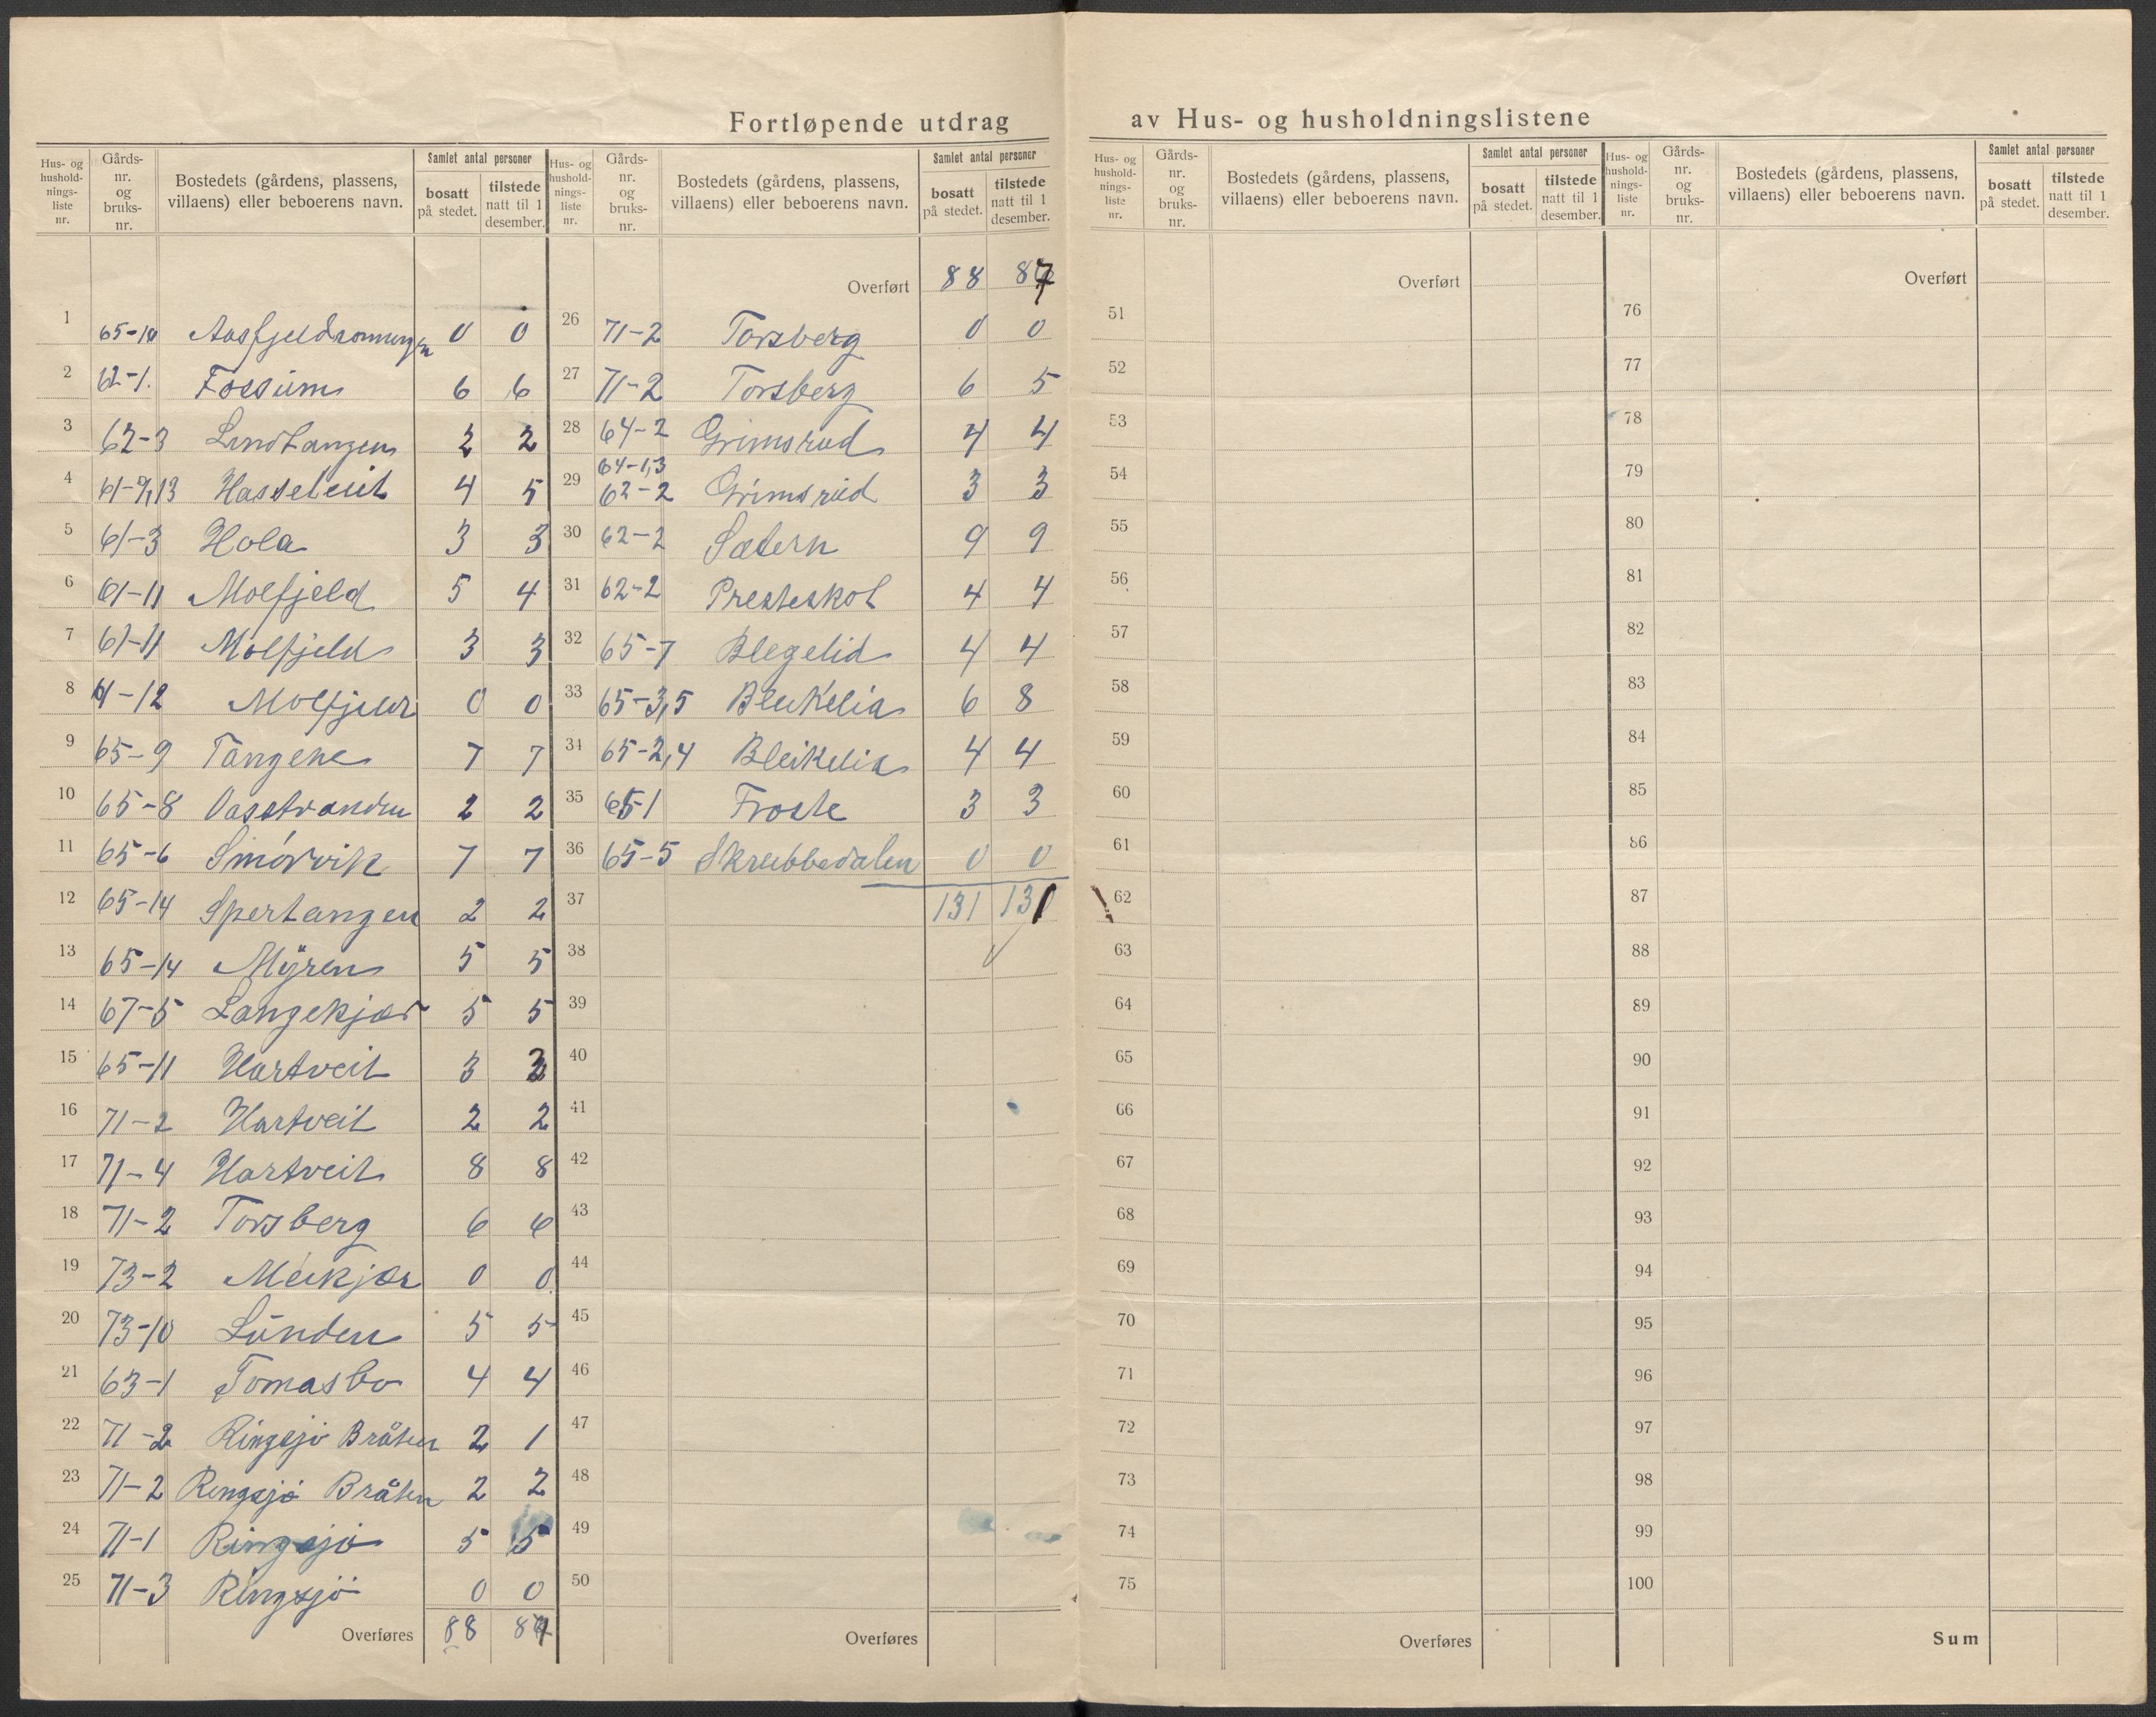 Fortløpende utdrag av Hus- og husholdningslistene
Hus- og hushold-nings-liste nr. | Gårds-nr. og bruks-nr. | Bostedets (gårdens, plassens, villaens) eller beboerens navn. | Samlet antal personer | bosatt på stedet. | tilstede natt til 1 desember.
1 65-10 0 0
2 62-1. Fossum 6 6
3 62-3 Lindtangen 2 2
4 61-9,13 Hasseleit 4 5
5 61-3 Hola 3 3
6 61-11 Molfjeld 5 4
7 61-11 Molfjeld 3 3
8 61-12 Molfjeld 0 0
9 65-9 Tangene 7 7
10 65-8 Vasstranden 2 2
11 65-6 Smörvik 7 7
12 65-14 Spertangen 2 2
13 65-14 Myren 5 5
14 67-5 Langekjær 5 5
15 65-11 Hartveit 3 3
16 71-2 Hartveit 2 2
17 71-4 Hartveit 8 8
18 71-2 Torsberg 6 6
19 73-2 Meikjær 0 0
20 73-10 Lunden 5 5
21 63-1 Tomasbo 4 4
22 71-2 Ringsjö Bråten 2 1
23 71-2 Ringsjö Bråten 2 2
24 71-1 Ringsjö 5 5
25 71-3 Ringsjö 0 0
Overføres 88 87
Hus- og hushold-nings-liste nr. | Gårds-nr. og bruks-nr. | Bostedets (gårdens, plassens, villaens) eller beboerens navn. | Samlet antal personer | bosatt på stedet. | tilstede natt til 1 desember.
Overført 88 87
26 71-2 Torsberg 0 0
27 71-2 Torsberg 6 5
28 64-2 Grimsrud 4 4
64-1,3
29 62-2 Grimsrud 3 3
30 62-2 Sætern 9 9
31 62-2 Presteskot 4 4
32 65-7 Blegelid 4 4
33 65-3,5 Bleikelia 6 8
34 65-2,4 Bleikelia 4 4
35 65-1 Froste 3 3
36 65-5 Skrubbedalen 0 0
37 131 131
38
39
40
41
42
43
44
45
46
47
48
49
50
Overføres
Hus- og hushold-nings-liste nr. | Gårds-nr. og bruks-nr. | Bostedets (gårdens, plassens, villaens) eller beboerens navn. | Samlet antal personer | bosatt på stedet. | tilstede natt til 1 desember.
Overført
51
52
53
54
55
56
57
58
59
60
61
62
63
64
65
66
67
68
69
70
71
72
73
74
75
Overføres
Hus- og hushold-nings-liste nr. | Gårds-nr. og bruks-nr. | Bostedets (gårdens, plassens, villaens) eller beboerens navn. | Samlet antal personer | bosatt på stedet. | tilstede natt til 1 desember.
Overført
76
77
78
79
80
81
82
83
84
85
86
87
88
89
90
91
92
93
94
95
96
97
98
99
100
Sum